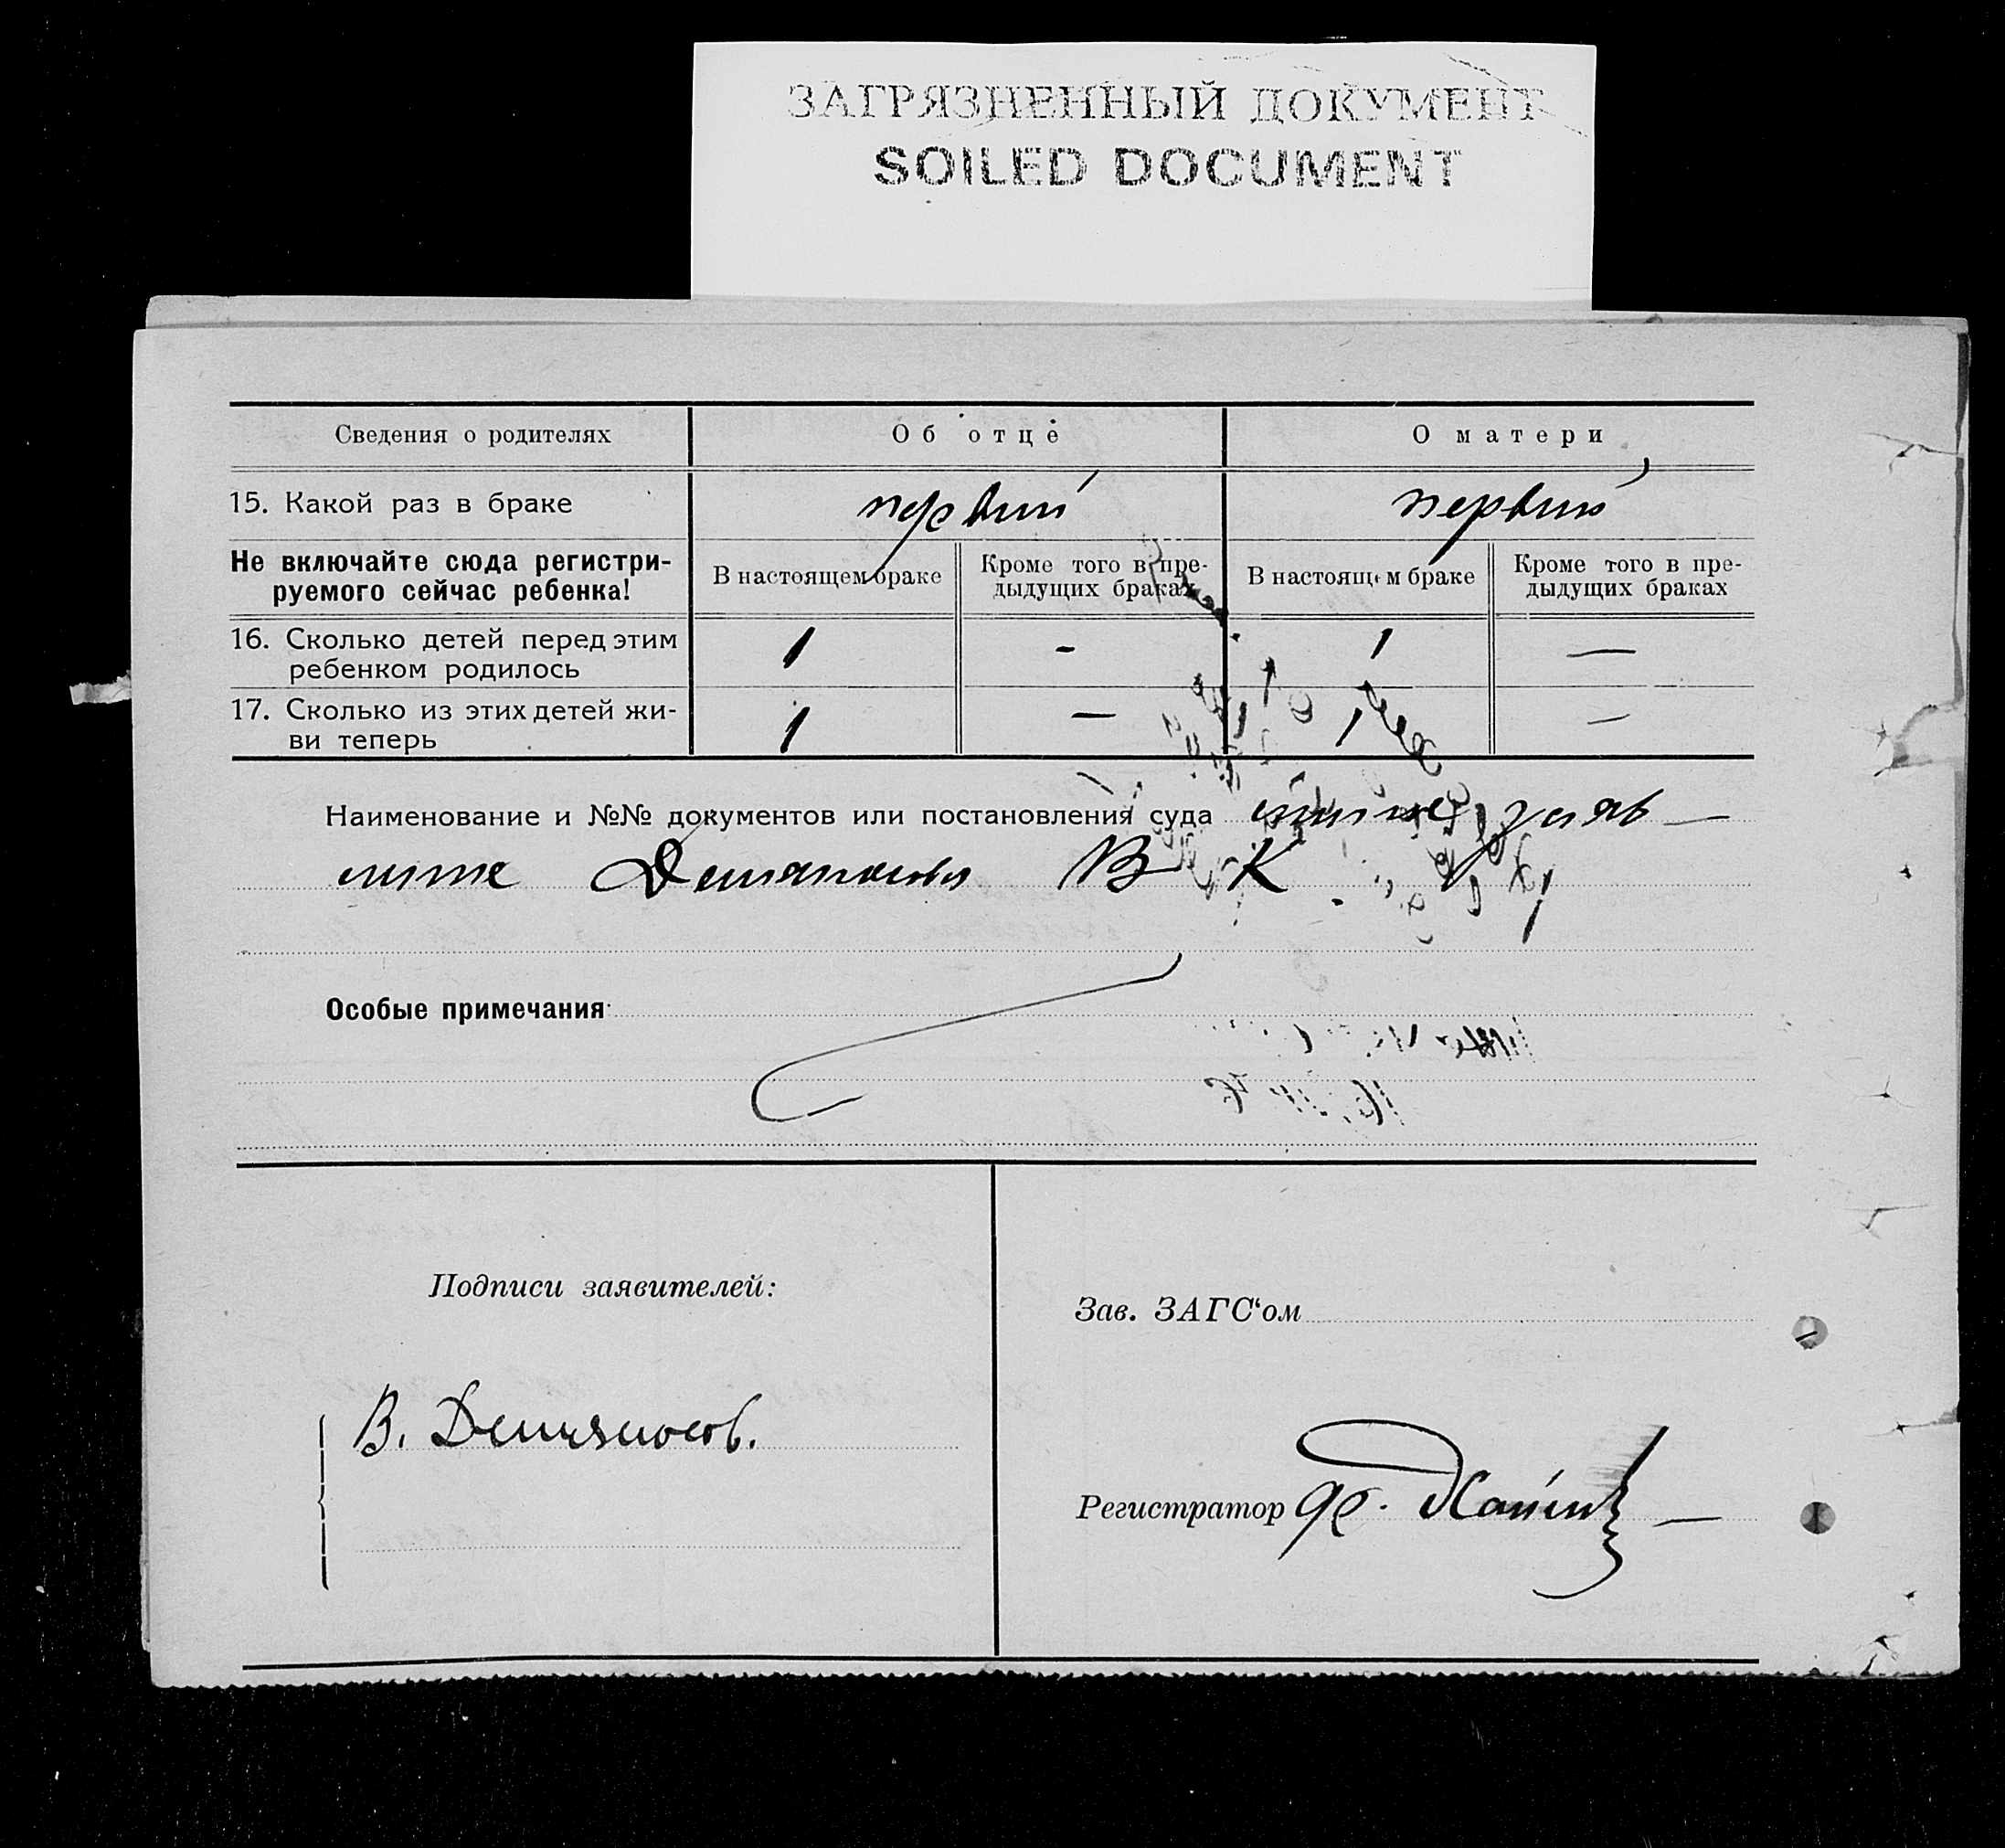 ЗАГРЯЗНЕННЫЙ ДОКУМЕНТ
SOILED DOCUMENT
Сведения о родителях
Об отце
О матери
15. Какой раз в браке
первый
первый
Не включайте сюда регистри-
руемого сейчас ребенка!
В настоящем браке
Кроме того в пре-
дыдущих браках
В настоящем браке
Кроме того в пре-
дыдущих браках
16. Сколько детей перед этим
ребенком родилось
1
-
1
—
17. Сколько из этих детей жи-
ви теперь
1
—
1
—
Наименование и №№ документов или постановления суда
В К
Особые примечания
Подписи заявителей:
Зав. ЗАГС‘ом
В.
Регистратор